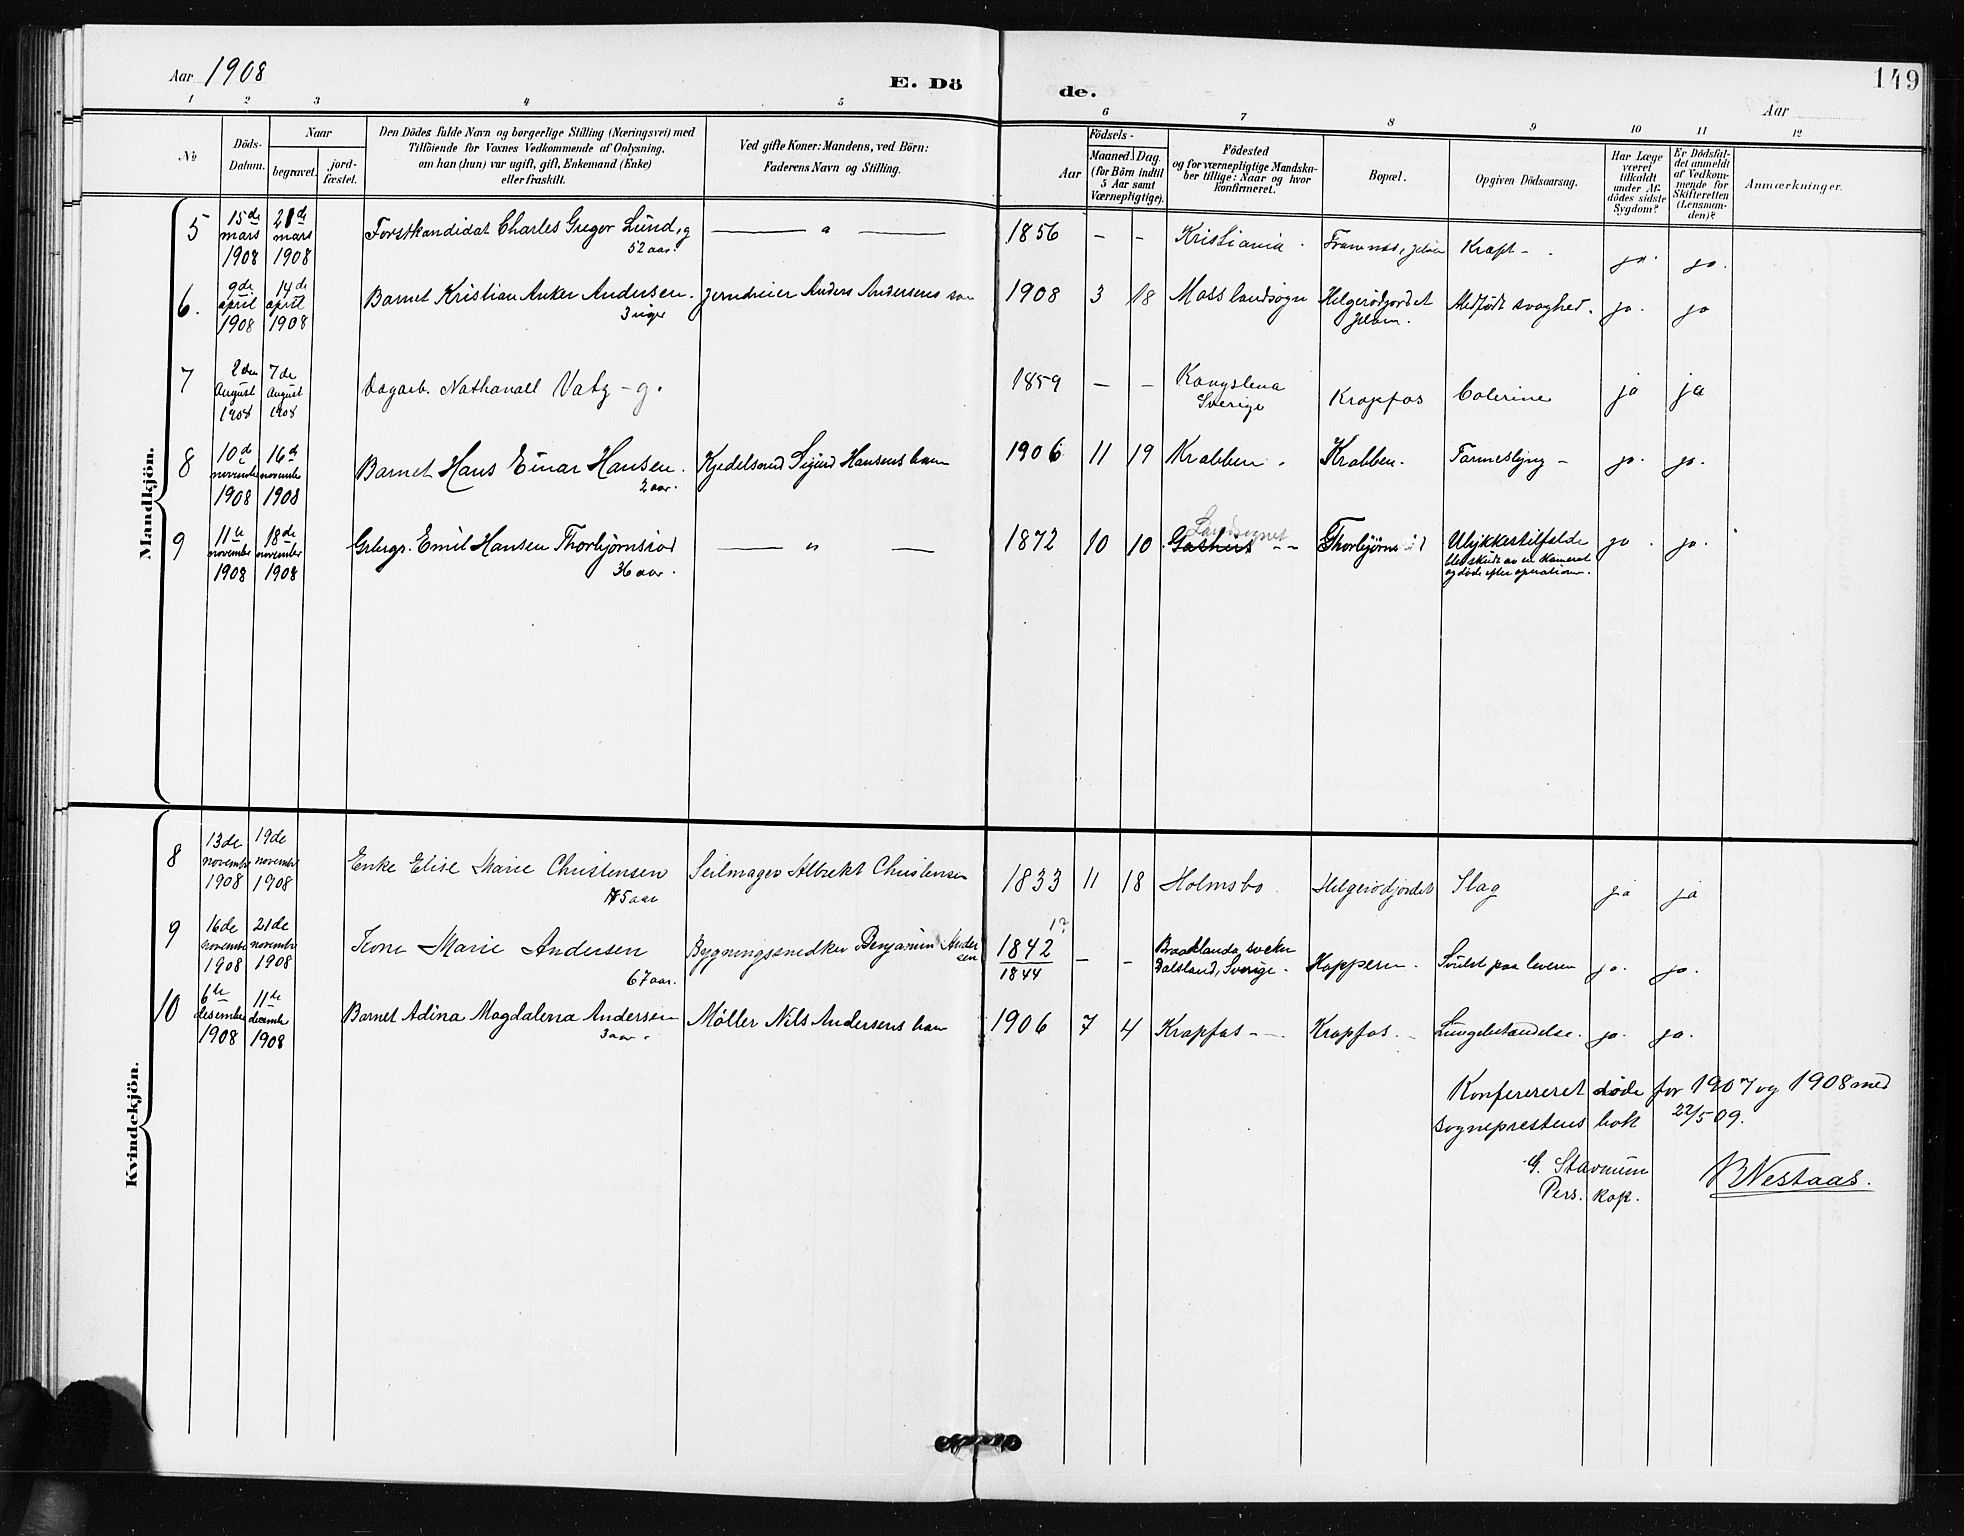 Aar 1908
E. Dö
de.
149
Aar
1 2 3 4 5 6 7 8 9 10 11 12
№
Döds-
Datum.
Naar
begravet.
jord-
fæstet.
Den Dödes fulde Navn og borgerlige Stilling (Næringsvei) med
Tilföiende for Voxnes Vedkommende af Oplysning,
om han (hun) var ugift, gift, Enkemand (Enke)
eller fraskilt.
Ved gifte Koner: Mandens, ved Börn:
Faderens Navn og Stilling.
Aar
Födsels-
Maaned. Dag.
(for Börn indtil
5 Aar samt
Værnepligtige).
Födested
og for værnepligtige Mandska-
ber tillige: Naar og hvor
konfirmeret.
Bopæl.
Opgiven Dödsaarsag.
Har Læge
været
tilkaldt
under Af-
dödes sidste
Sygdom?
Er Dödsfal-
det anmeldt
af Vedkom-
mende for
Skifteretten
(Lensman-
den)?
Anmærkninger.
Mandkjön.
5 15de mars 1908 21de mars 1908 Forstkandidat Charles Gregor Lund, g 52 aar. — " — 1856 – – Kristiania Framnes, Jeløen Kræft – ja. ja.
6. 9de april 1908 14de april 1908 Barnet Kristian Anker Andersen. 3 uger Jerndreier Anders Andersens søn 1908 3 18 Moss landsogn Helgerødjordet Jeløen. Medfødt svaghed. ja. ja
7 2den August 1908 7de August 1908 Dagarb. Nathanall Vatz – g. 1859 – – Kongslena Sverige Krapfos Colerine ja ja
8 10de november 1908 16de november 1908 Barnet Hans Einar Hansen. 2 aar. Kjedelsmed Sigurd Hansens barn 1906 11 19 Krabben. Krabben. Tarmeslyng – ja. ja.
9 11te november 1908 18de november 1908 Grbrgr. Emil Hansen Thorbjørnsrød 36 aar. — " — 1872 10 10 Landsognet Thorbjørnsrød Ulykkestilfælde blev skudt av en kamerat og døde efter operationen. ja. ja.
Kvindekjön.
8 13de november 1908 19de november 1908 Enke Elise Marie Christensen 75 aar Seilmager Albrekt Christensen 1833 11 18 Holmsbo. Helgerødjordet Slag ja ja
9 16de november 1908 21de november 1908 Kone Marie Andersen 67 aar. Bygningssnedker Benjamin Andersen 1842 1? 1844 – – Dalsland, Sverige. Koppern. Svulst paa leveren ja. ja.
10 6te desember 1908 11te december 1908 Barnet Adina Magdalena Andersen 3 aar. Møller Nils Andersens barn 1906 7 4 Krapfos – – Krapfos. – Lungebetændelse. ja. ja.
Konfereret døde for 1907 og 1908 med
sogneprestens bok 22/5 09.
G. Stavnum
Pers. Kap.
B Nestaas.